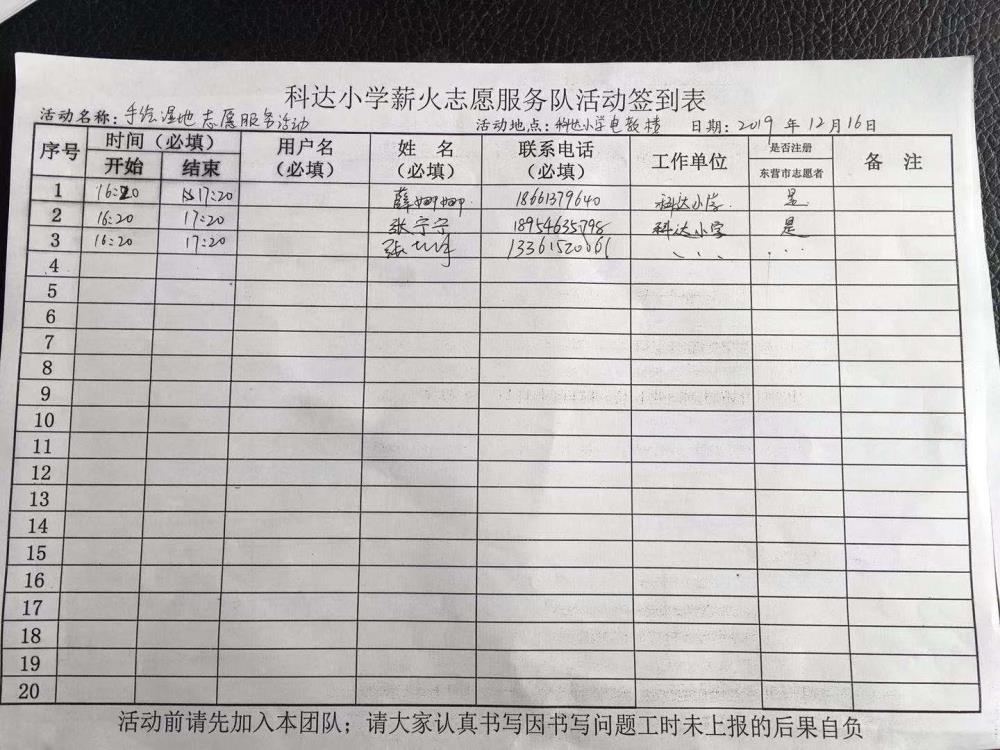 科达小学薪火志愿服务队活动签到表
活动名称：手绘湿地志愿服务活动 活动地点：科达小学电教楼 日期：2019 年 12 月 16 日
序号 时间（必填） 用户名（必填） 姓 名（必填） 联系电话（必填） 工作单位 是否注册东营市志愿者 备 注
开始 结束
1 16:20 17:20 薛娜娜 18661379640 科达小学 是
2 16:20 17:20 张宁宁 18954635798 科达小学 是
3 16:20 17:20 张 13361520661
4
5
6
7
8
9
10
11
12
13
14
15
16
17
18
19
20
活动前请先加入本团队；请大家认真书写因书写问题工时未上报的后果自负